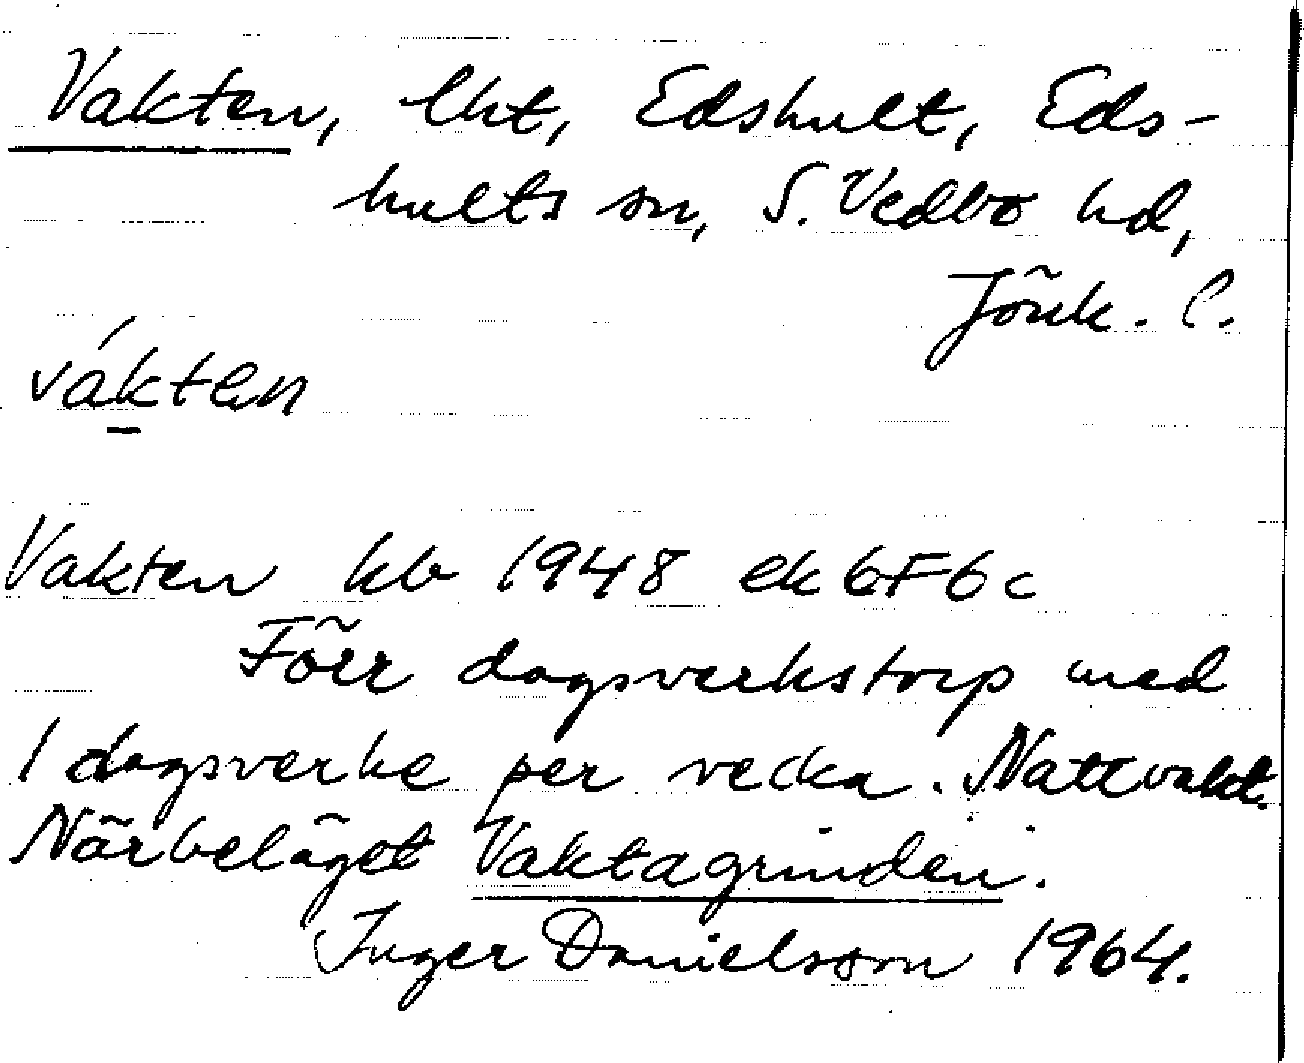 Vakten, lht, Edshult, Eds-
hults sn, S. Vedbo hd,
Jönk. l.
vákten
Vakten kb 1948 ek 6F6c
Förr dagsverkstorp med
1 dagsverke per vecka. Nattvakt.
Närbeläget Vaktagrinden.
Inger Danielsson 1964.